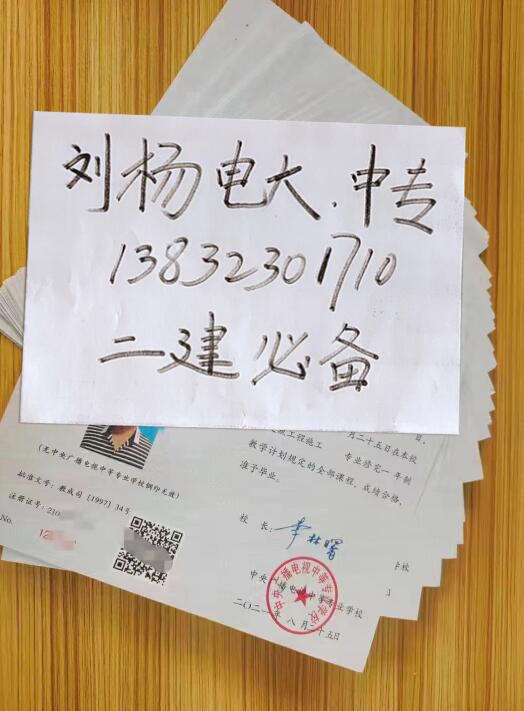 刘杨电大.中专
13832301710
二建必备
工程施工
月二十五日在本校
专业修完一年制
教学计划规定的全部课程，成绩合格，
准予毕业。
(无中央广播电视中等专业学校钢印无效)
批准文号：教成司[1997]34号
注册证号：210
No.
12
校长：
李林曙
中央广播电视中等专业学校
二〇二一年八月二十五日